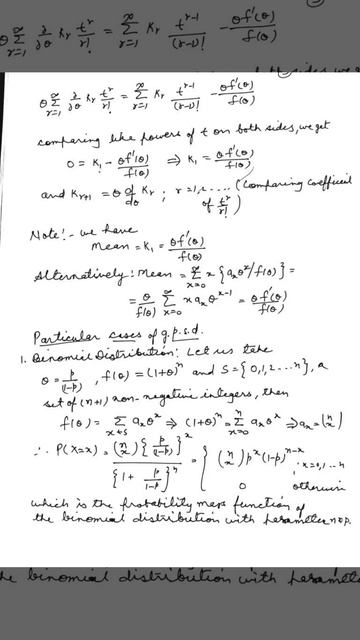 θ ∞Σr=1 ∂/∂θ Kr t^r/r! = ∞Σr=1 Kr t^(r-1)/(r-1)! - θf'(θ)/f(θ)
θ ∞Σr=1 ∂/∂θ Kr t^r/r! = ∞Σr=1 Kr t^(r-1)/(r-1)! - θf'(θ)/f(θ)
comparing like powers of t on both sides, we get
0 = K₁ - θf'(θ)/f(θ) ⇒ K₁ = θf'(θ)/f(θ)
and Kr+1 = θ d/dθ Kr ; r=1,2.... (Comparing coefficient
of t^r/r!)
Note:- we have
Mean = K₁ = θf'(θ)/f(θ)
Alternatively: Mean = ∞Σx=0 x {aₓθ^x/f(θ)} =
= θ/f(θ) ∞Σx=0 x aₓ θ^(x-1) = θf'(θ)/f(θ)
Particular cases of g.p.s.d.
1. Binomial Distribution: Let us take
θ = p/(1-p) , f(θ) = (1+θ)^n and S = {0,1,2...n}, a
set of (n+1) non-negative integers, then
f(θ) = Σx∈S aₓθ^x ⇒ (1+θ)^n = nΣx=0 aₓθ^x ⇒ aₓ = (n x)
∴ P(X=x) = (n x) {p/(1-p)}^x / {1 + p/(1-p)}^n = { (n x) p^x (1-p)^(n-x) ; x=0,1..n
0 otherwise
which is the probability mass function of
the binomial distribution with parameter n & p.
the binomial distribution with